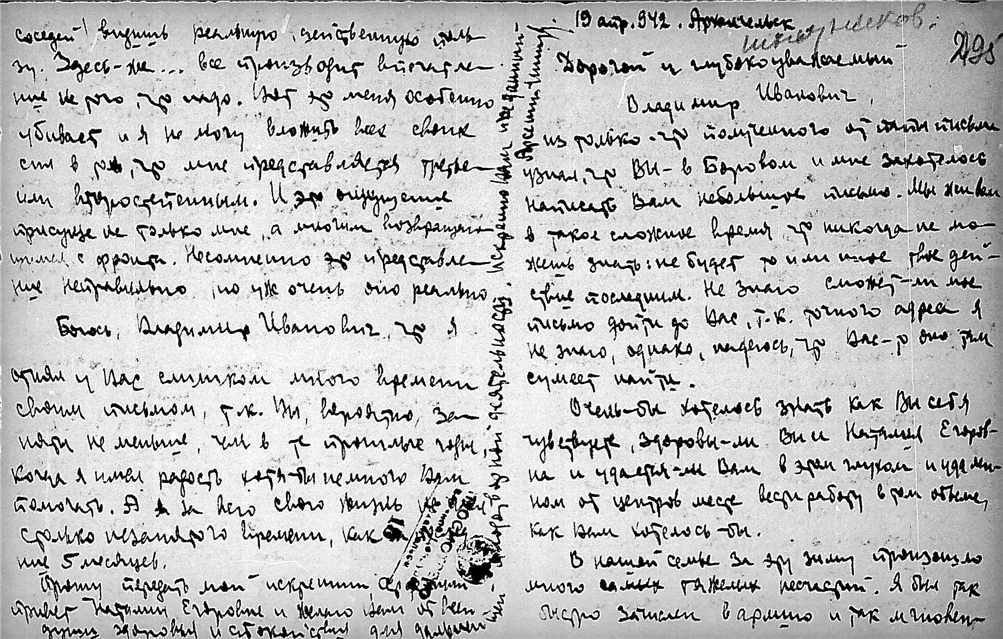 19 апр. 942. Архангельск
295
Дорогой и глубокоуважаемый
Владимир Иванович,
из только-что полученного от письма
узнал, что Вы - в Боровом и мне захотелось
написать Вам небольшое письмо. Мы живем
в такое сложное время, что никогда не мо-
жешь знать: не будет то или иное твое дей-
ствие последним. Не знаю сможет-ли мое
письмо дойти до Вас, т.к. точного адреса я
не знаю, однако, надеюсь, что Вас-то оно там
сумеет найти.
Очень-бы хотелось знать как Вы себя
чувствуете, здоровы-ли Вы и Наталия Егоров-
на и удается-ли Вам в этом глухом и удален-
ном от центров месте вести работу в том объеме,
как Вам хотелось-бы.
В нашей семье за эту зиму произошло
много самых тяжелых несчастий. Я был так
быстро записан в армию и так мгновен-
соседей видишь реальную, действенную поль-
зу. Здесь-же... все производит впечатле-
ние не того, что надо. Вот это меня особенно
убивает и я не могу вложить всех своих
сил в то, что мне представляется третье-
или второстепенным. И это ощущение
присуще не только мне, а многим возвращаю-
щимся с фронта. Несомненно это представле-
ние неправильно, но уж очень оно реально
Боюсь, Владимир Иванович, что я
отнял у Вас слишком много времени
своим письмом, т.к. Вы, вероятно, за-
няты не меньше, чем в те прошлые годы,
когда я имел радость хотя-бы немного Вам
помогать. А я за всю свою жизнь не
столько незанятого времени, как
ние 5 месяцев.
Прошу передать мой искренний
привет Наталии Егоровне и желаю Вам от всей
души здоровья и спокойствия для дальней
плодотворной деятельности. Искренно Вам преданный